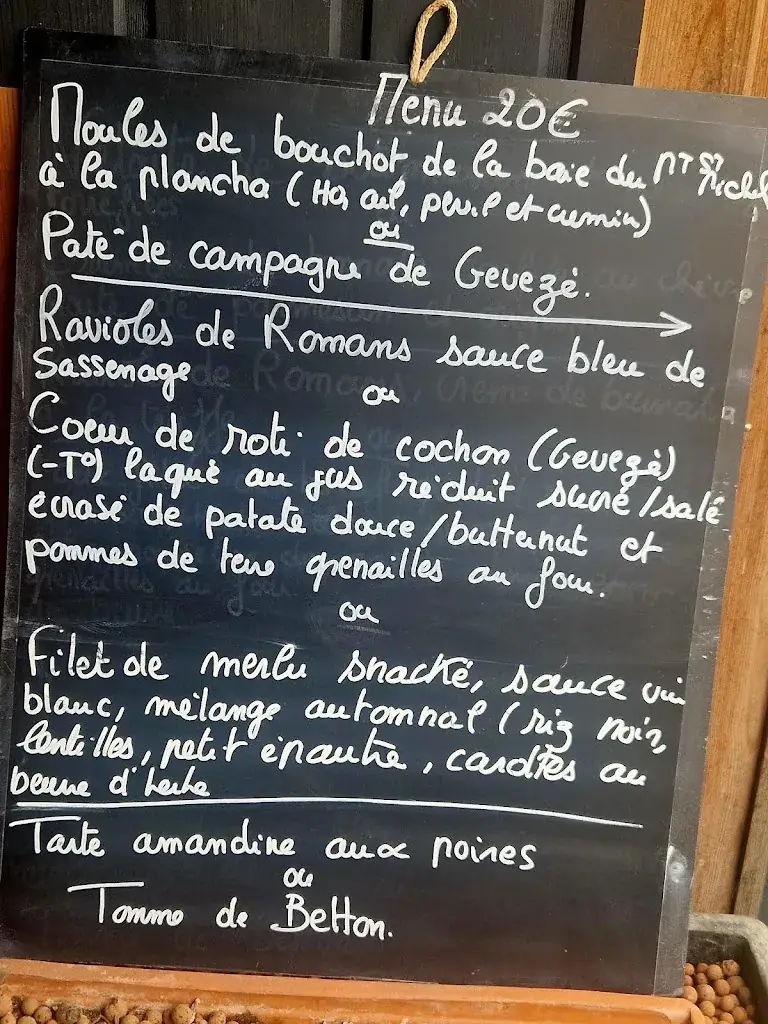 Menu 20€
Moules de bouchot de la baie du Mt St Michel
à la plancha (Ho, ail, persil et cumin)
ou
Paté de campagne de Gevezé.
Ravioles de Romans sauce bleu de
Sassenage
ou
Coeur de roti de cochon (Gevezé)
(-T°) laqué au jus réduit sucré/salé
écrasé de patate douce/butternut et
pommes de terre grenailles au four.
ou
Filet de merlu snacké, sauce vin
blanc, mélange automnal (riz noir,
lentilles, petit épautre, carottes au
beurre d'herbe
Tarte amandine aux poires
ou
Tomme de Betton.